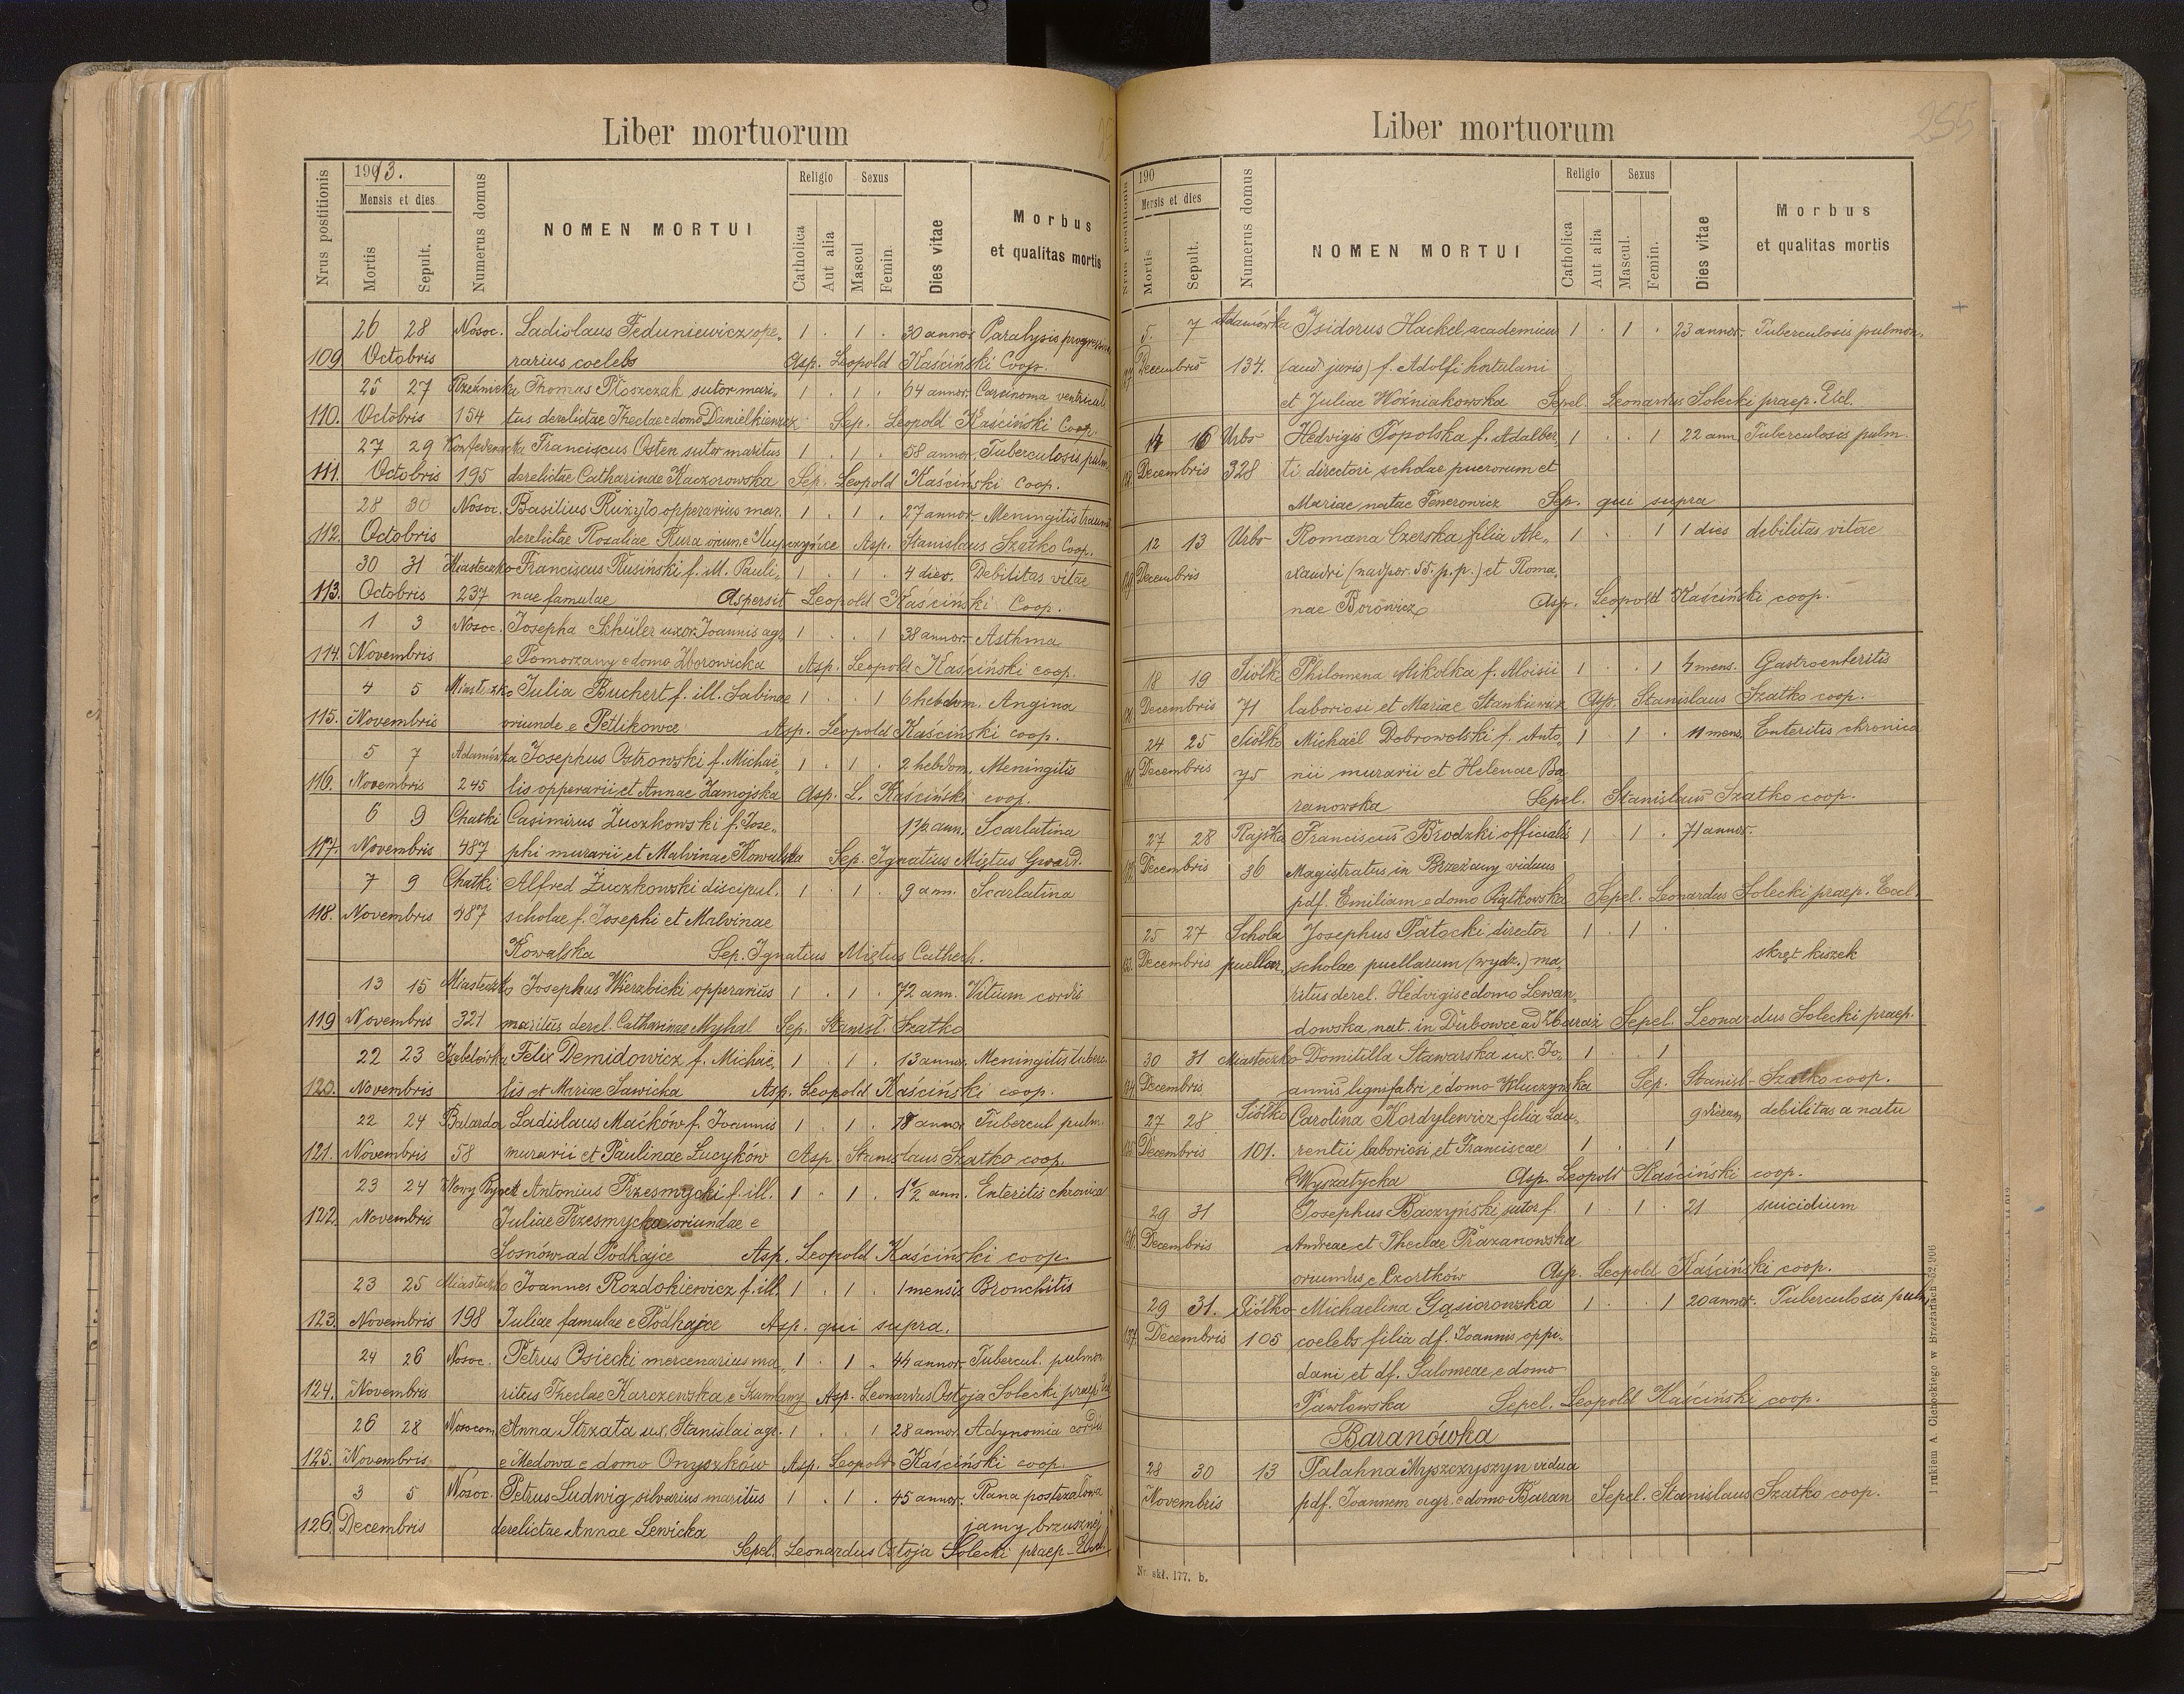 Liber mortuorum
Nrus postitionis
1913.
Mensis et dies
Mortis
Sepult.
Numerus domus
NOMEN MORTUI
Religio
Catholica
Aut alia
Sexus
Mascul
Femin.
Dies vitae
Morbus
et qualitas mortis
26 28 Nosoc. Ladislaus Feduniewicz ope„ 1 . 1 . 30 annor. Paralysis progressiva
109. Octobris rarius coelebs Asp. Leopold Kaściński Coop.
25 27 Rzeźnicka Thomas Płoszczak sutor mari„ 1 . 1 . 64 annor. Carcinoma ventriculi
110. Octobris 154 tus derelictae Theclae e domo Danielkiewicz Sep. Leopold Kaściński Coop.
27 29 Franciscus Osten sutor maritus 1 . 1 . 58 annor. Tuberculosis pulm.
111. Octobris 195 derelictae Catharinae Kaczorowska Sep. Leopold Kaściński Coop.
28 30 Nosoc. Basilius Ruzyło opperarius mar. 1 . 1 . 27 annor. Meningitis traum
112. Octobris derelictae Rosaliae Kura oriun. e Kupczyńce Asp. Stanislaus Szatko Coop.
30 31 Miasteczko Franciscus Rusiński f. ill. Pauli„ 1 . 1 . 4 dier. Debilitas vitae
113. Octobris 237 nae famulae Aspersit Leopold Kaściński Coop.
1 3 Nosoc. Josepha Schüler uxor Joannis agr. 1 . . 1 38 annor. Asthma
114. Novembris e Pomorzany e domo Zborowicka Asp. Leopold Kaściński coop.
4 5 Miasteczko Julia Buchert f. ill. Sabinae 1 . . 1 6 hebdom. Angina
115. Novembris oriunde e Petlikowce Asp. Leopold Kaściński coop.
5 7 Adamówka Josephus Ostrowski f. Michaë„ 1 . 1 . 2 hebdom. Meningitis
116. Novembris 245 lis opperarii et Annae Zamojska Asp. L. Kaściński coop.
6 9 Chatki Casimirus Żuczkowski f. Jose„ 1 1/2 ann. Scarlatina
117. Novembris 487 phi murarii et Malvinae Kowalska Sep. Ignatius Miętus Gward.
7 9 Chatki Alfred Żuczkowski discipul. 1 . 1 . 9 ann. Scarlatina
118. Novembris 487 scholae f. Josephi et Malvinae
Kowalska Sep. Ignatius Miętus Cathech.
13 15 Miasteczko Josephus Wierzbicki opperarius 1 . 1 . 72 ann. Vitium cordis
119 Novembris 321 maritus derel. Catharinae Myhal Sep. Stanisł. Szatko
22 23 Izabelówka Felix Demidowicz f. Michaë„ 1 . 1 . 13 annor. Meningitis tuberc.
120. Novembris lis et Mariae Sawicka Asp. Leopold Kaściński coop.
22 24 Ladislaus Maćków f. Joannis 1 . 1 . 18 annor Tubercul pulm.
121. Novembris 58 murarii et Paulinae Lucyków Asp. Stanislaus Szatko coop.
23 24 Nowy Rynek Antonius Przesmycki f. ill. 1 . 1 . 1 1/2 ann. Enteritis chronica
122. Novembris Juliae Przesmycka oriundae e
Sosnów ad Podhajce Asp. Leopold Kaściński coop.
23 25 Miasteczko Joannes Rozdokiewicz f. ill. 1 . 1 . 1 mensis Bronchitis
123. Novembris 198 Juliae famulae e Podhajce Asp. qui supra.
24 26 Nosoc. Petrus Osiecki mercenarius ma„ 1 . 1 . 44 annor. Tubercul. pulmon
124. Novembris ritus Theclae Karczewska e Kumlany Asp. Leonardus Ostoja Solecki praep.
26 28 Nosocom. Anna Strzata ux. Stanislai agr. 1 . . 1 28 annor. Adynamia cordis
125. Novembris e Medowa e domo Onyszków Asp. Leopold Kaściński coop.
3 5 Nosoc. Petrus Ludwig silvarius maritus 1 . 1 . 45 annor. Rana postrzałowa
126. Decembris derelictae Annae Lewicka jamy brzusznej
Sepel. Leonardus Ostoja Solecki praep. Eccl.
Liber mortuorum
255
Nrus postitionis
190
Mensis et dies
Mortis
Sepult.
Numerus domus
NOMEN MORTUI
Religio
Catholica
Aut alia
Sexus
Mascul.
Femin.
Dies vitae
Morbus
et qualitas mortis
5. 7 Adamówka Isidorus Hackel academicus 1 . 1 . 23 annor. Tuberculosis pulmon.
127 Decembris 134. (aud juris) f. Adolfi hortulani
et Juliae Woźniakowska Sepel. Leonardus Solecki praep. Eccl.
14 16 Urbs Hedvigis Topolska f. Adalber„ 1 . . 1 22 ann. Tuberculosis pulm.
128. Decembris 328 ti directori scholae puerorum et
Mariae natae Tenerowicz Sep. qui supra
12 13 Urbs Romana Czerska filia Ale„ 1 . . 1 1 dies debilitas vitae
129 Decembris xandri (nadpor. 55. p.p.) et Roma„
nae Borowicz Asp. Leopold Kaściński coop.
18 19 Siółko Philomena Mikołka f. Aloisii 1 . . 1 4 mens. Gastroenteritis
130. Decembris 71 laboriosi et Mariae Stankiewicz Asp. Stanislaus Szatko coop.
24 25 Siółko Michaël Dobrowolski f. Anto„ 1 . 1 . 11 mens. Enteritis chronica
131. Decembris 75 nii murarii et Helenae Ba„
ranowska Sepel. Stanislaus Szatko coop.
27 28 Rajska Franciscus Brodzki officialis 1 . 1 . 71 annor.
132. Decembris 36 Magistratus in Brzeżany viduus
pdf. Emiliam e domo Piątkowska Sepel. Leonardus Solecki praep. Eccl.
25 27 Schola Josephus Patocki director 1 . 1 .
133. Decembris puellar. scholae puellarum (wydz.) ma„ skręt kiszek
ritus derel. Hedvigis e domo Lewan„
dowska nat. in Dubowce ad Zbaraż Sepel. Leonardus Solecki praep.
30 31 Miasteczko Domitilla Stawarska ux. Jo„ 1 . 1
134. Decembris annis lignifabri e domo Kluczyńska Sep. Stanisl. Szatko coop.
27 28 Siółko Carolina Kordylewicz filia Lau„ 9 dierum debilitas a natu
135. Decembris 101. rentii laboriosi et Franciscae 1 . 1
Wyszatycka Asp. Leopold Kaściński coop.
29 31 Josephus Baczyński sutor f. 1 . 1 . 21 suicidium
136. Decembris Andreae et Theclae Prazanowska
oriundus e Czortków Asp. Leopold Kaściński coop.
29 31. Siółko Michaelina Gąsiorowska 1 . . 1 20 annor. Tuberculosis pulm.
137. Decembris 105 coelebs filia df. Joannis oppi„
dani et df. Salomeae e domo
Pawłowska Sepel. Leopold Kaściński coop.
Baranówka
28 30 13 Palahna Myszczyszyn vidua
Novembris pdf. Joannem agr. e domo Baran Sepel. Stanislaus Szatko coop.
Nr. skł. 177. b.